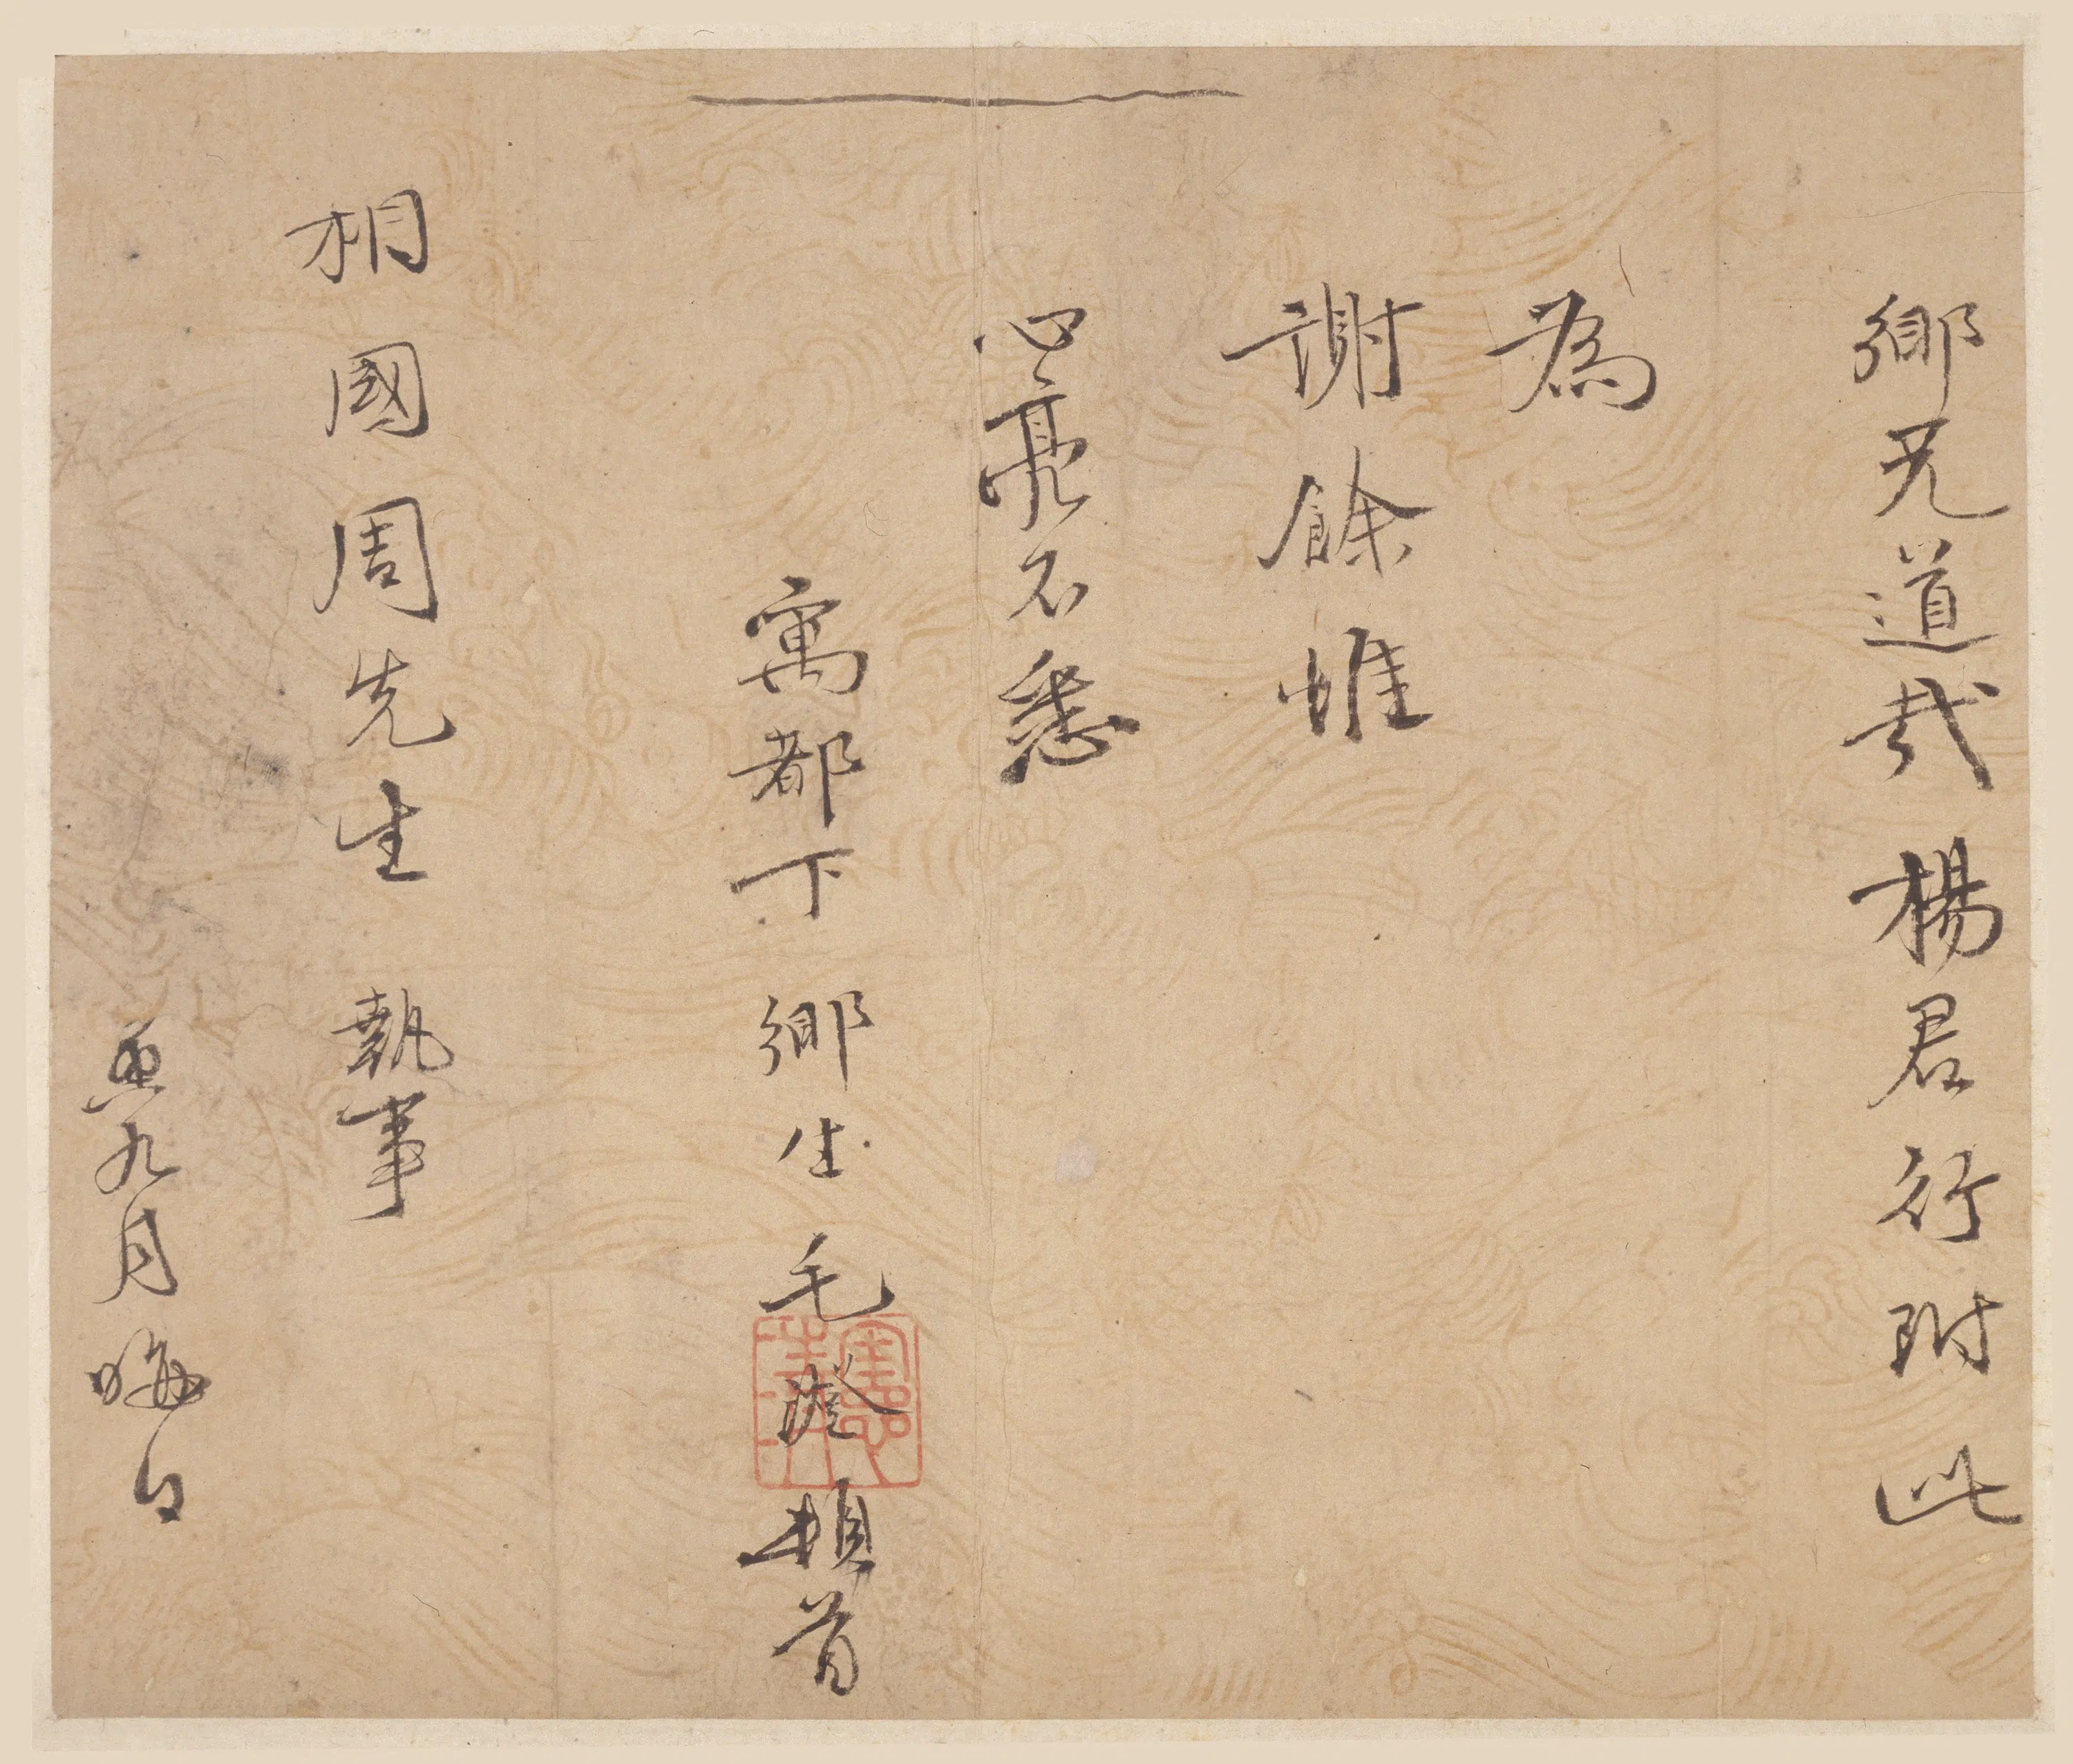 鄉兄道哉楊君行附此
為
謝餘惟
心亮不悉
寓都下鄉生毛澄頓首
相國周先生執事
九月晦日